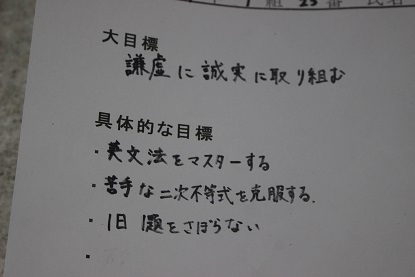 組 23番 氏名
大目標
謙虚に誠実に取り組む
具体的な目標
・英文法をマスターする
・苦手な二次不等式を克服する.
・1日1題をさぼらない
・